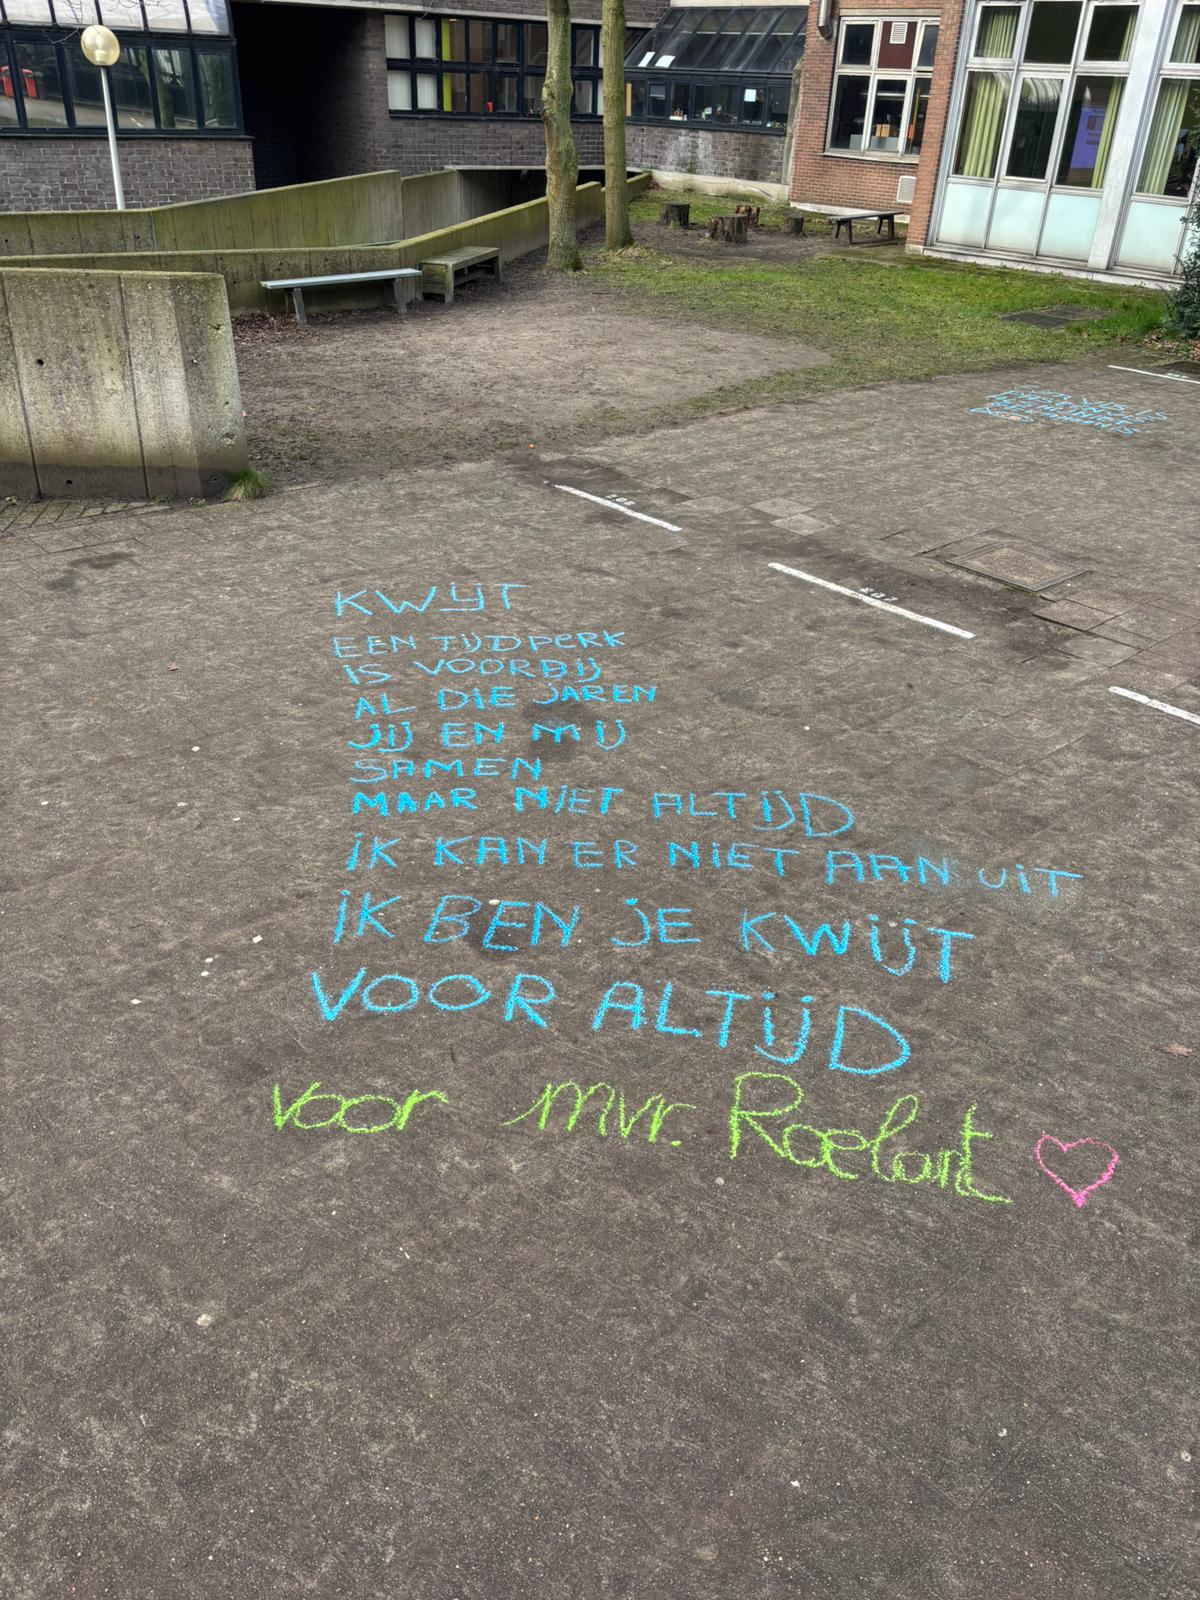 KWIJT
EEN TIJDPERK
IS VOORBIJ
AL DIE JAREN
JIJ EN MIJ
SAMEN
MAAR NIET ALTIJD
IK KAN ER NIET AAN UIT
IK BEN JE KWIJT
VOOR ALTIJD
voor mvr. Roelant